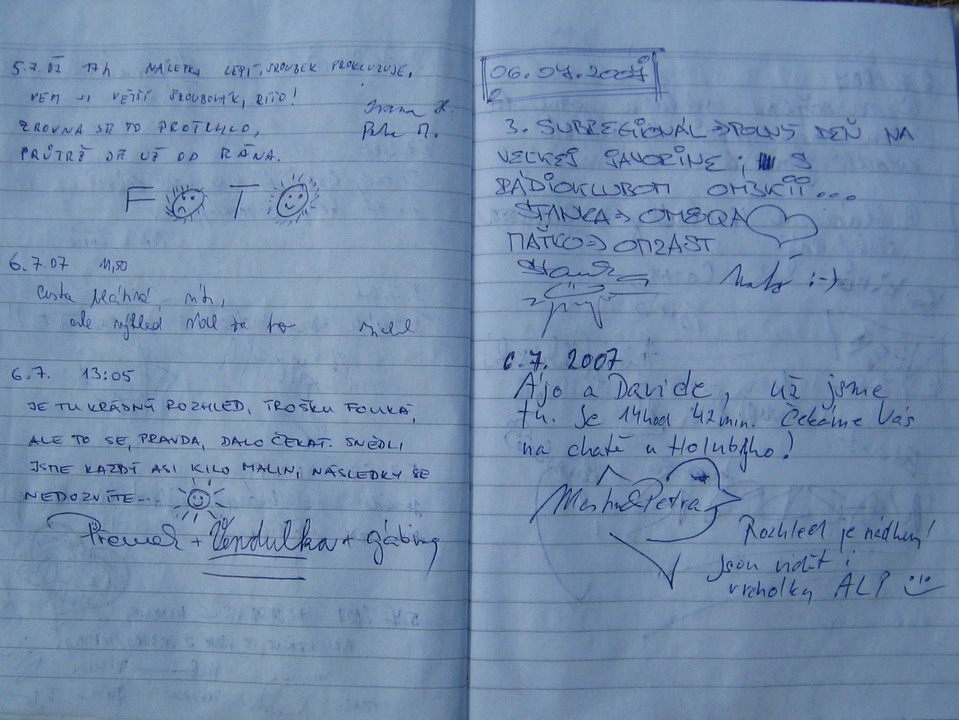 5.7.07 17h NÁLEPKA LEPÍ, ŠROUBEK PROKLUZUJE,
VEM SI VĚTŠÍ ŠROUBOVÁK,
ZROVNA SE TO PROTRHLO,
PRŮTRŽ JE UŽ OD RÁNA.
Ivana H.
Petr M.
F O T O
6.7.07 11,50
Cesta
ale výhled stál za to
6.7. 13:05
JE TU KRÁSNÝ ROZHLED, TROŠKU FOUKÁ,
ALE TO SE, PRAVDA, DALO ČEKAT. SNĚDLI
JSME KAŽDÝ ASI KILO MALIN, NÁSLEDKY SE
NEDOZVÍTE...
Přemek + Vendulka + gábina
06.07.2007
3. SUBREGIONÁL → POLNÝ DEŇ NA
VEĽKEJ JAVORINE; S
RÁDIOKLUBOM OM3KII...
STANKA → OM8QA
MAŤKO → OM2AST
Maťo :-)
6.7. 2007
Ájo a Davide, už jsme
tu. Je 14hod 42min. Čekáme Vás
na chatě u Holubyho!
Petra
Rozhled je nádherný!
Jsou vidět i
vrcholky ALP